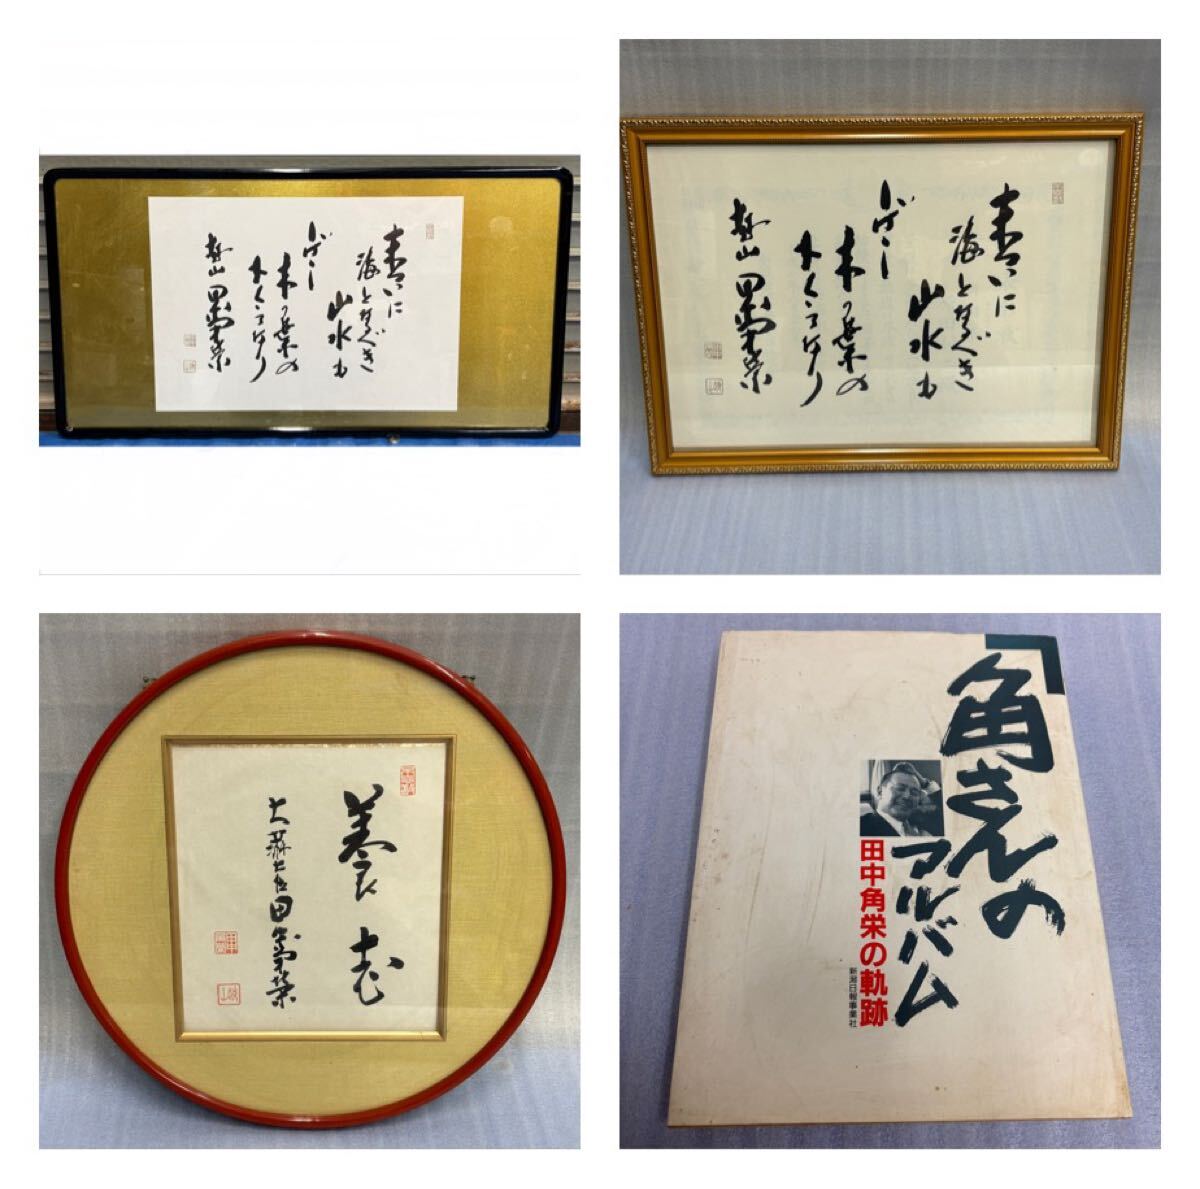 末ついに
海となるべき
山水も
しばし
木の葉の
下くぐるなり
越山 田中角栄
末ついに
海となるべき
山水も
しばし
木の葉の
下くぐるなり
越山 田中角栄
養志
大蔵大臣田中角栄
角さんの
アルバム
田中角栄の軌跡
新潟日報事業社